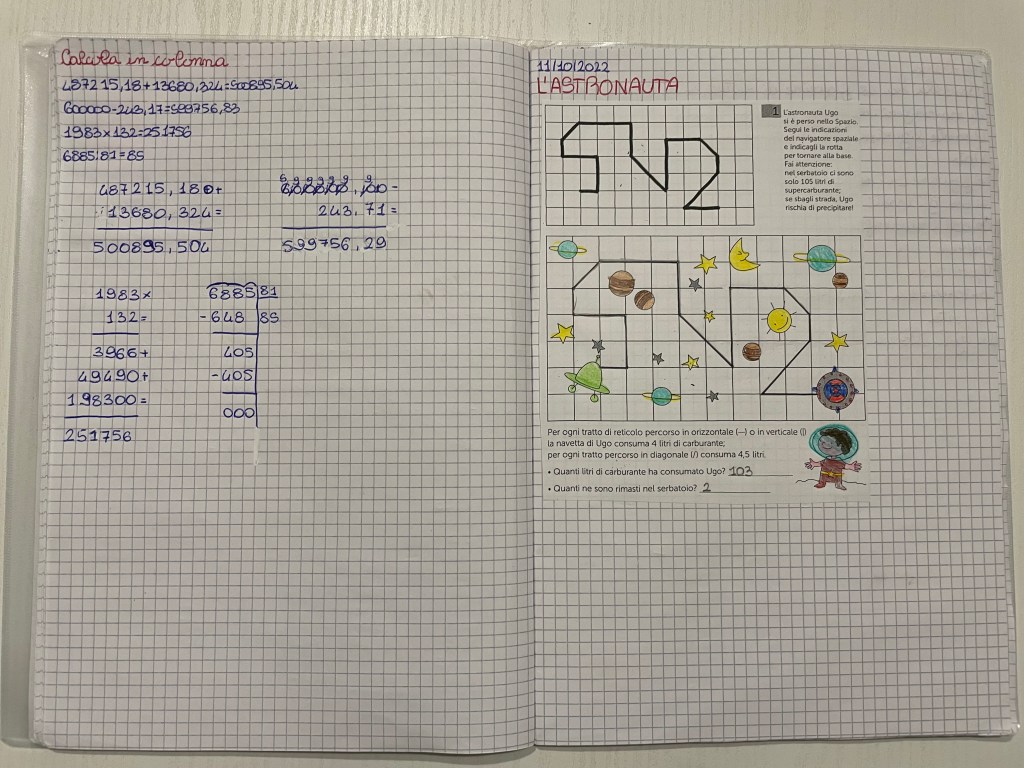 Calcola in colonna
487215,18+13680,324=500895,504
600000-243,17=599756,83
1983×132=251756
6885:81=85
487215,180+
13680,324=
500895,504
600000,00-
243,71=
599756,29
1983×
132=
3966+
49490+
198300=
251756
6885 81
-648 85
405
-405
000
11/10/2022
L'ASTRONAUTA
1 L'astronauta Ugo
si è perso nello Spazio.
Segui le indicazioni
del navigatore spaziale
e indicagli la rotta
per tornare alla base.
Fai attenzione:
nel serbatoio ci sono
solo 105 litri di
supercarburante;
se sbagli strada, Ugo
rischia di precipitare!
Per ogni tratto di reticolo percorso in orizzontale (—) o in verticale (|)
la navetta di Ugo consuma 4 litri di carburante;
per ogni tratto percorso in diagonale (/) consuma 4,5 litri.
• Quanti litri di carburante ha consumato Ugo? 103
• Quanti ne sono rimasti nel serbatoio? 2